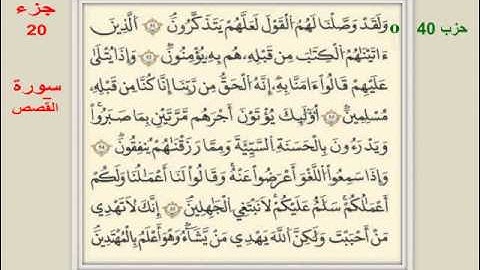 جزء
20
سورة
القصص
حزب 40
وَلَقَدْ وَصَّلْنَا لَهُمُ الْقَوْلَ لَعَلَّهُمْ يَتَذَكَّرُونَ الَّذِينَ
ءَاتَيْنَٰهُمُ الْكِتَٰبَ مِن قَبْلِهِ هُم بِهِ يُؤْمِنُونَ وَإِذَا يُتْلَىٰ
عَلَيْهِمْ قَالُوا ءَامَنَّا بِهِ إِنَّهُ الْحَقُّ مِن رَّبِّنَا إِنَّا كُنَّا مِن قَبْلِهِ
مُسْلِمِينَ أُوْلَٰئِكَ يُؤْتَوْنَ أَجْرَهُم مَّرَّتَيْنِ بِمَا صَبَرُوا
وَيَدْرَءُونَ بِالْحَسَنَةِ السَّيِّئَةَ وَمِمَّا رَزَقْنَٰهُمْ يُنفِقُونَ
وَإِذَا سَمِعُوا اللَّغْوَ أَعْرَضُوا عَنْهُ وَقَالُوا لَنَا أَعْمَٰلُنَا وَلَكُمْ
أَعْمَٰلُكُمْ سَلَٰمٌ عَلَيْكُمْ لَا نَبْتَغِي الْجَٰهِلِينَ إِنَّكَ لَا تَهْدِي
مَنْ أَحْبَبْتَ وَلَٰكِنَّ اللَّهَ يَهْدِي مَن يَشَآءُ وَهُوَ أَعْلَمُ بِالْمُهْتَدِينَ